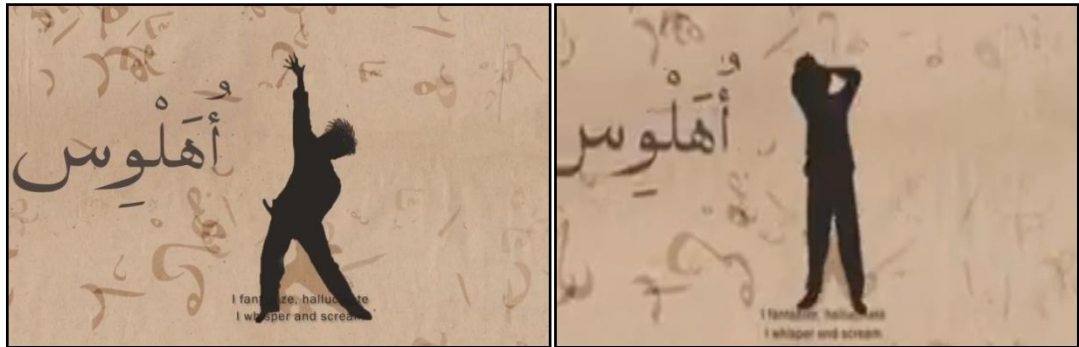 أُهَلْوِس
I fantasize, hallucinate
I whisper and scream
أُهَلْوِس
I fantasize, hallucinate
I whisper and scream